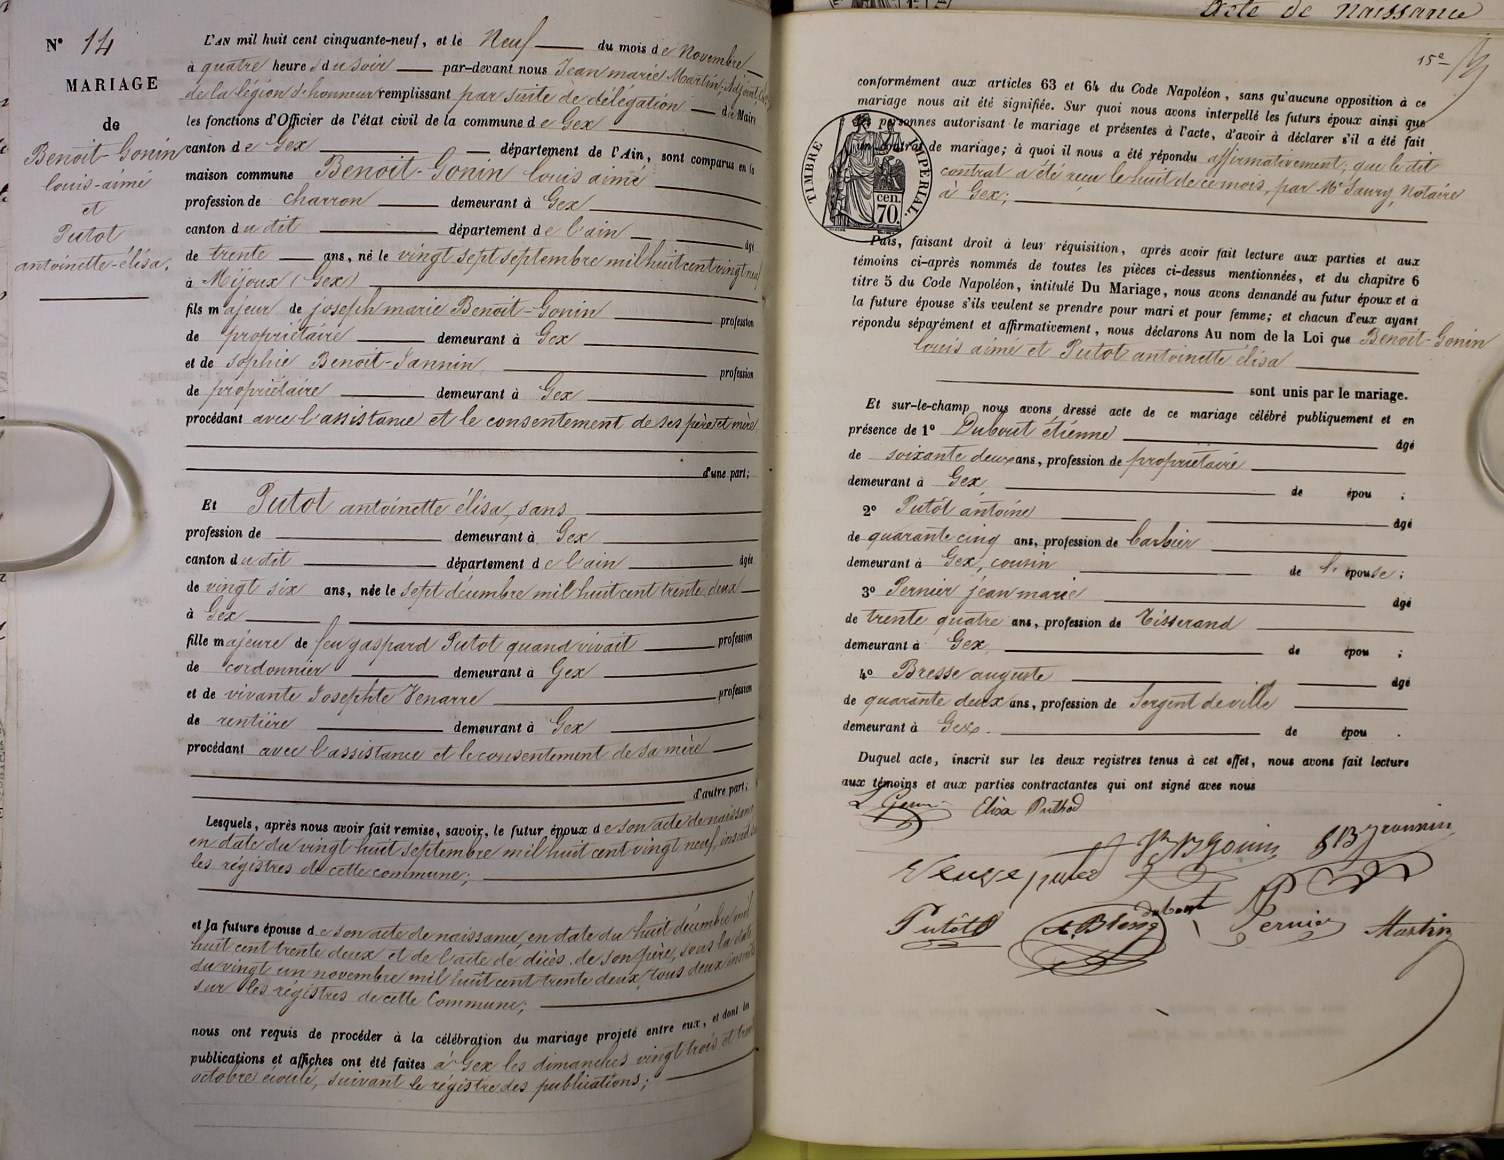 Nº 14
MARIAGE
de
Benoit-Gonin
louis-aimé
et
Putot
antoinette-élisa.
L'AN mil huit cent cinquante-neuf, et le Neuf du mois de Novembre
à quatre heures du soir par-devant nous Jean marie Martin, Adjoint,
de la légion d'honneur remplissant par suite de délégation du Maire
les fonctions d'Officier de l'état civil de la commune de Gex
canton de Gex département de l'Ain, sont comparus en la
maison commune Benoit-Gonin louis aimé
profession de charron demeurant à Gex
canton dudit département de l'ain âgé
de trente ans, né le vingt sept septembre mil huit cent vingt neuf
à Mijoux (Gex)
fils majeur de joseph marie Benoit-Gonin profession
de propriétaire demeurant à Gex
et de sophie Benoit-Jannin profession
de propriétaire demeurant à Gex
procédant avec l'assistance et le consentement de ses père et mère
d'une part;
Et Putot antoinette élisa, sans
profession de demeurant à Gex
canton dudit département de l'ain âgée
de vingt six ans, née le sept décembre mil huit cent trente deux
à Gex
fille majeure de feu gaspard Putot quand vivait profession
de cordonnier demeurant à Gex
et de vivante Josephte Venarre profession
de rentière demeurant à Gex
procédant avec l'assistance et le consentement de sa mère
d'autre part;
Lesquels, après nous avoir fait remise, savoir, le futur époux de son acte de naissance
en date du vingt huit septembre mil huit cent vingt neuf, inscrit sur
les régistres de cette commune;
et la future épouse de son acte de naissance, en date du huit décembre mil
huit cent trente deux et de l'acte de décès de son père, sous la date
du vingt un novembre mil huit cent trente deux, tous deux inscrits
sur les régistres de cette Commune;
nous ont requis de procéder à la célébration du mariage projeté entre eux, et dont les
publications et affiches ont été faites à Gex les dimanches vingt trois et trente
octobre écoulé, suivant le régistre des publications;
acte de naissance
15e
conformément aux articles 63 et 64 du Code Napoléon, sans qu'aucune opposition à ce
mariage nous ait été signifiée. Sur quoi nous avons interpellé les futurs époux ainsi que
les personnes autorisant le mariage et présentes à l'acte, d'avoir à déclarer s'il a été fait
un contrat de mariage; à quoi il nous a été répondu affirmativement, que le dit
contrat a été reçu le huit de ce mois, par Me Saury, Notaire
à Gex;
TIMBRE IMPÉRIAL.
cen.
70.
Puis, faisant droit à leur réquisition, après avoir fait lecture aux parties et aux
témoins ci-après nommés de toutes les pièces ci-dessus mentionnées, et du chapitre 6
titre 5 du Code Napoléon, intitulé Du Mariage, nous avons demandé au futur époux et à
la future épouse s'ils veulent se prendre pour mari et pour femme; et chacun d'eux ayant
répondu séparément et affirmativement, nous déclarons Au nom de la Loi que Benoit-Gonin
louis aimé et Putot antoinette élisa
sont unis par le mariage.
Et sur-le-champ nous avons dressé acte de ce mariage célébré publiquement et en
présence de 1º Dubout étienne âgé
de soixante deux ans, profession de propriétaire
demeurant à Gex de épou ;
2º Putot antoine âgé
de quarante cinq ans, profession de barbier
demeurant à Gex, cousin de l'épouse;
3º Pernier jean marie âgé
de trente quatre ans, profession de Tisserand
demeurant à Gex de épou ;
4º Bresse auguste âgé
de quarante deux ans, profession de Sergent de ville
demeurant à Gex. de épou .
Duquel acte, inscrit sur les deux registres tenus à cet effet, nous avons fait lecture
aux témoins et aux parties contractantes qui ont signé avec nous
Elisa Puthod
Veuve
Putôt dubout Pernier Martin